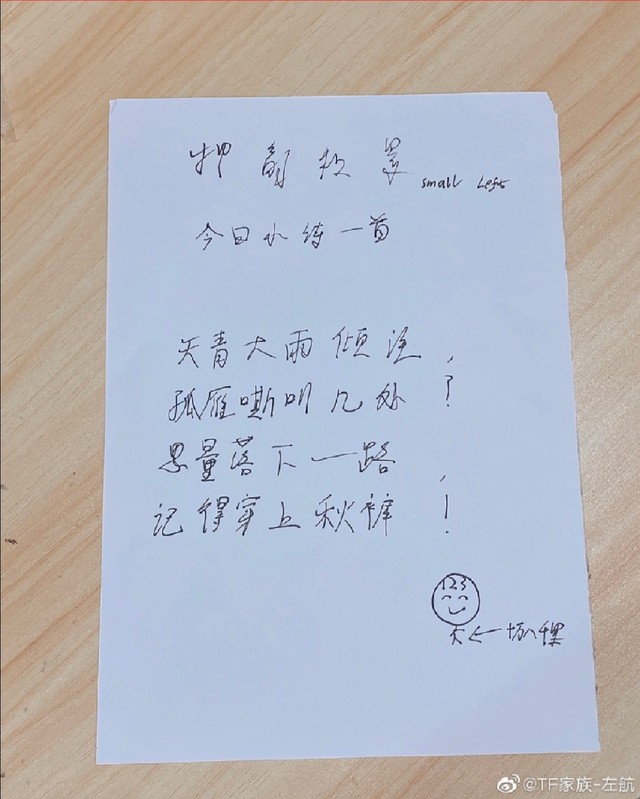 small Left
今日一首
天青大雨倾注，
孤雁嘶叫几处？
思量落下一路，
记得穿上秋裤！
123
@TF家族-左航